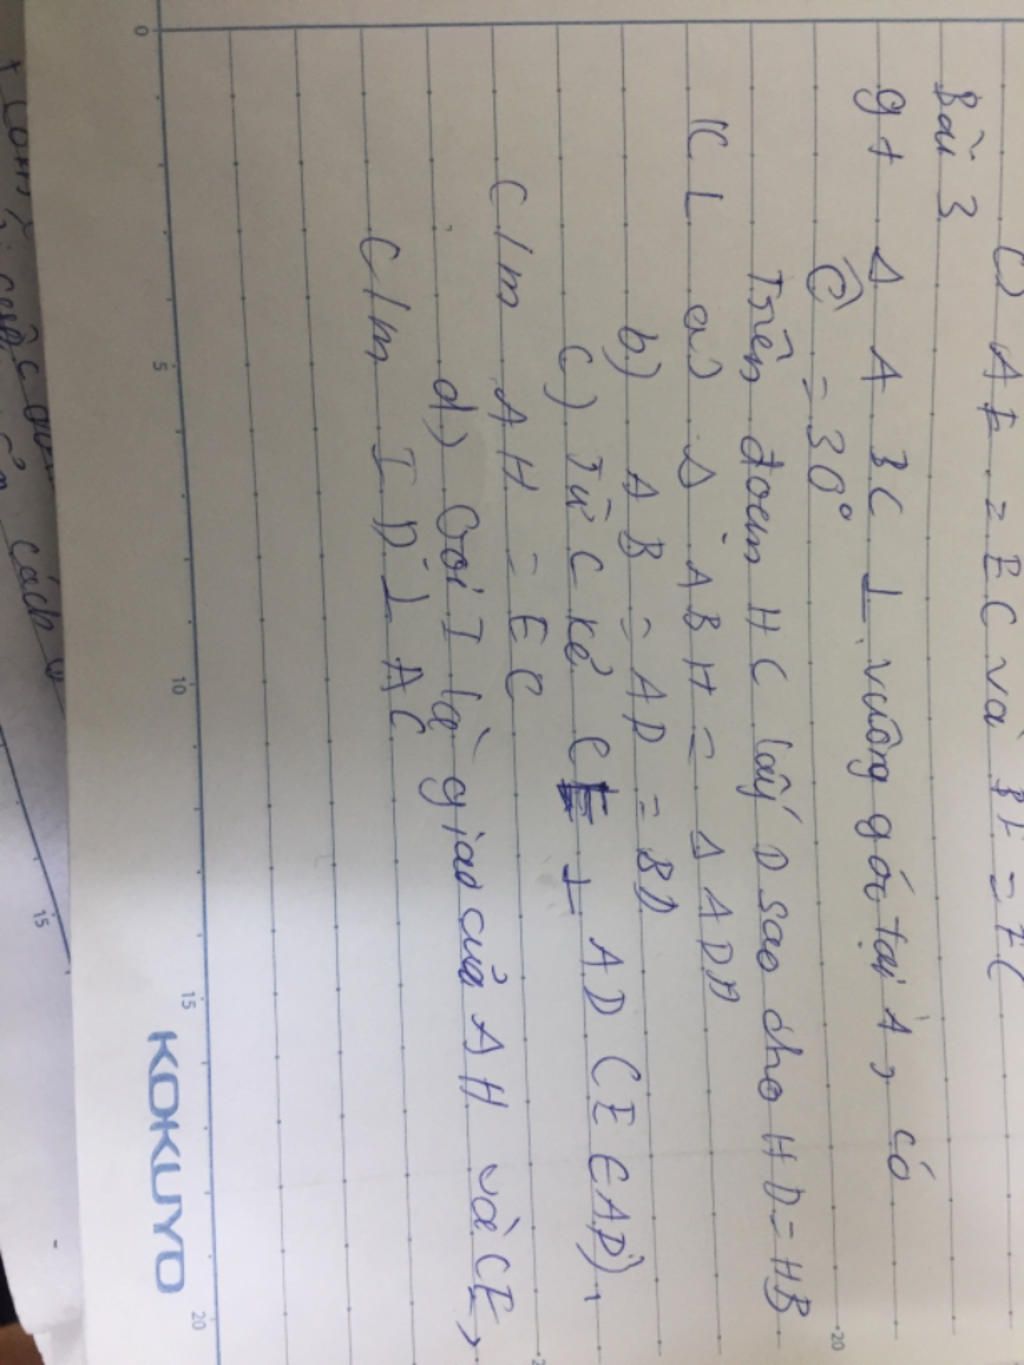 c) AF = EC và BF = EC
Bài 3
gt Δ ABC ⊥ vuông góc tại A, có
Ĉ = 30°
Trên đoạn HC lấy D sao cho HD = HB
KL a) Δ ABH = Δ ADH
b) AB = AD = BD
c) Từ C kẻ CE ⊥ AD (E ∈ AD),
C/m AH = EC
d) Gọi I là giao của AH và CE,
C/m ID ⊥ AC
0
5
10
15
20
KOKUYO
20
15
cách